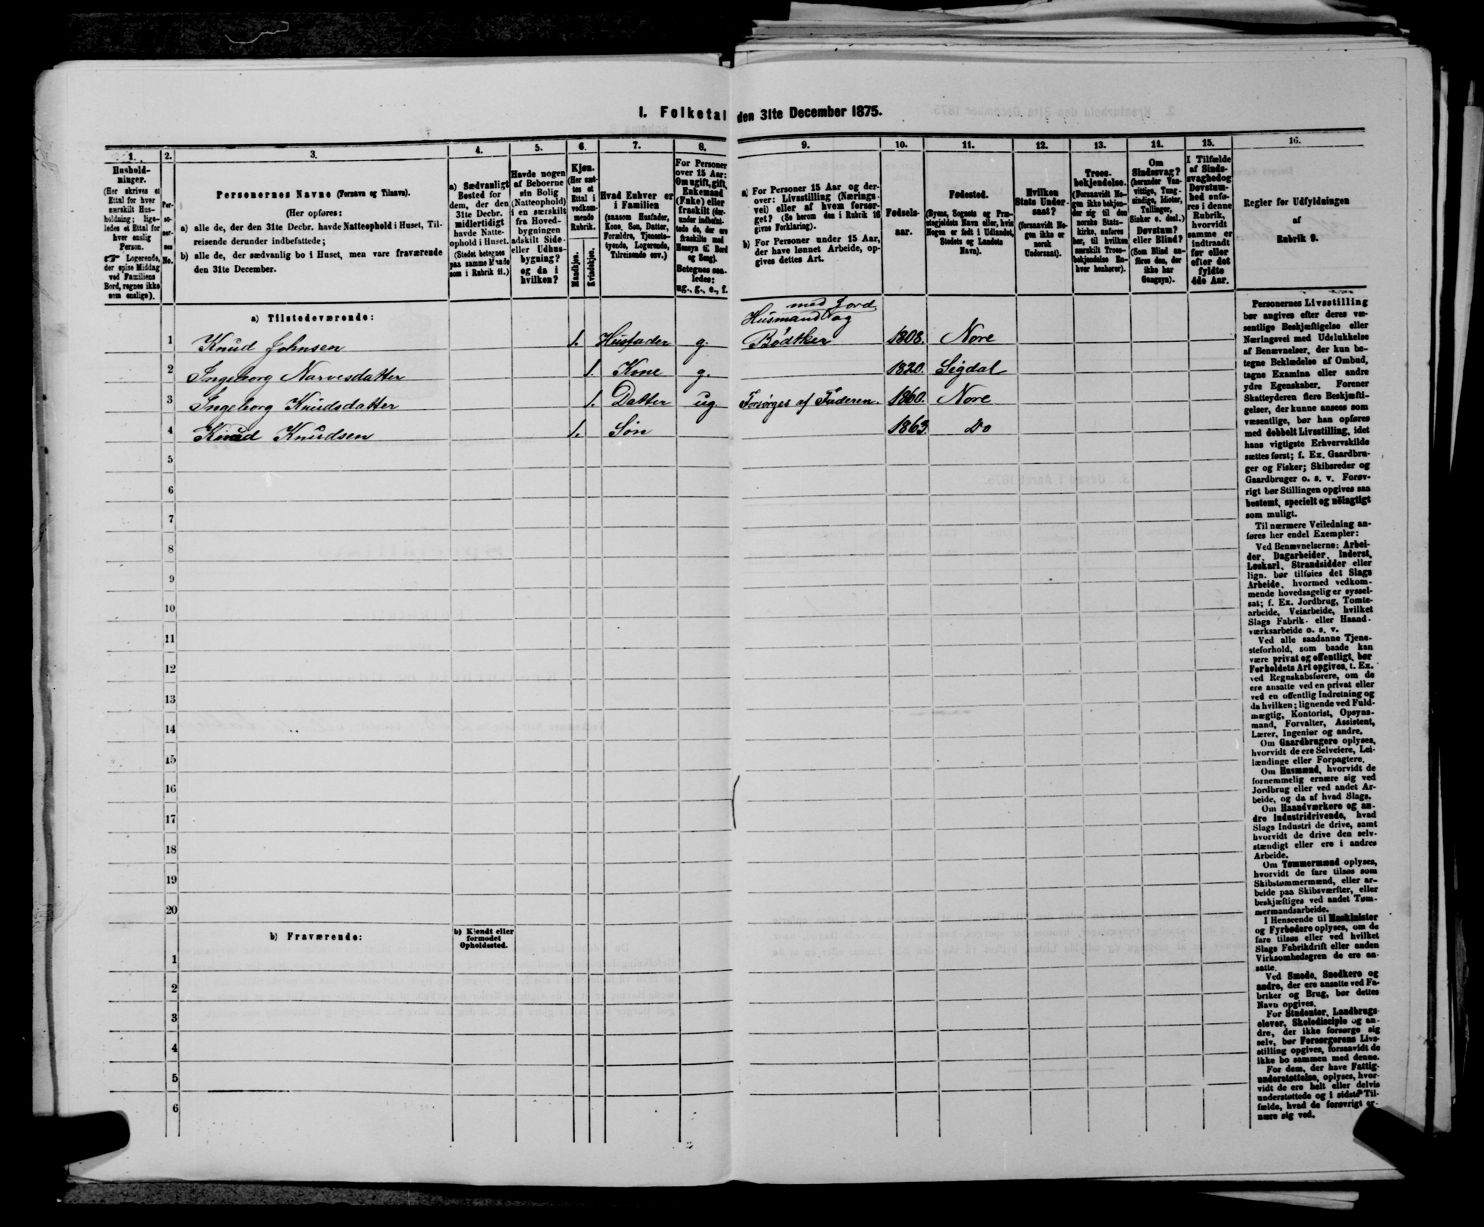 1. Folketal den 31te December 1875.
1.
2.
3.
4.
5.
6.
7.
8.
9.
10.
11.
12.
13.
14.
15.
16.
Hushold-
ninger.
(Her skrives et
Ettal for hver
særskilt Hus-
holdning; lige-
ledes et Ettal for
hver enslig
Person.
☞ Logerende,
der spise Middag
ved Familiens
Bord, regnes ikke
som enslige).
Per-
so-
ner-
nes
No.
Personernes Navne (Fornavn og Tilnavn).
(Her opføres:
a) alle de, der den 31te Decbr. havde Natteophold i Huset, Til-
reisende derunder indbefattede;
b) alle de, der sædvanlig bo i Huset, men vare fraværende
den 31te December.
a) Sædvanligt
Bosted for
dem, der den
31te Decbr.
midlertidigt
havde Natte-
ophold i Huset.
(Stedet betegnes
paa samme Maade
som i Rubrik 11.)
Havde nogen
af Beboerne
sin Bolig
(Natteophold)
i en særskilt
fra Hoved-
bygningen
adskilt Side-
eller Udhus-
bygning?
og da i
hvilken?
Kjøn.
(Her sæt-
tes et
Ettal i
vedkom-
mende
Rubrik.
Mandkjøn.
Kvindekjøn.
Hvad Enhver er
i Familien
(saasom Husfader,
Kone, Søn, Datter,
Forældre, Tjeneste-
tyende, Logerende,
Tilreisende osv.)
For Personer
over 15 Aar:
Om ugift, gift,
Enkemand
(Enke) eller
fraskilt (der-
under indbefat-
tede de, der ere
fraskilte med
Hensyn til Bord
og Seng).
Betegnes saa-
ledes:
ug., g., e., f.
a) For Personer 15 Aar og der-
over: Livsstilling (Nærings-
vei) eller af hvem forsør-
get? (Se herom den i Rubrik 16
givne Forklaring).
b) For Personer under 15 Aar,
der have lønnet Arbeide, op-
gives dettes Art.
Fødsels-
aar.
Fødested.
(Byens, Sognets og Præ-
stegjeldets Navn eller, hvis
Nogen er født i Udlandet,
Stedets og Landets
Navn).
Hvilken
Stats Under-
saat?
(forsaavidt No-
gen ikke er
norsk
Undersaat).
Troes-
bekjendelse.
(Forsaavidt No-
gen ikke bekjen-
der sig til den
norske Stats-
kirke, anføres
her, til hvilken
særskilt Troes-
bekjendelse En-
hver henhører).
Om
Sindssvag?
(herunder Van-
vittige, Tung-
sindige, Idioter,
Tullinger,
Sinker o. desl.)
Døvstum?
eller Blind?
(Som Blind an-
føres den, der
ikke har
Gangsyn).
I Tilfælde
af Sinds-
svaghed og
Døvstum-
hed anfø-
res i denne
Rubrik,
hvorvidt
samme er
indtraadt
før eller
efter det
fyldte
4de Aar.
Regler for Udfyldningen
af
Rubrik 9.
a) Tilstedeværende:
1 Knud Johnsen 1. Husfader g. Husmand med Jord og Bødtker 1808. Nore
2 Ingeborg Narvesdatter 1. Kone g. 1820. Sigdal
3 Ingeborg Knudsdatter 1. Datter ug. Forsørges af Faderen. 1860. Nore
4 Knud Knudsen 1. Søn 1863. Do
5
6
7
8
9
10
11
12
13
14
15
16
17
18
19
20
b) Fraværende:
b) Kjendt eller
formodet
Opholdssted.
1
2
3
4
5
6
Personernes Livsstilling
bør angives efter deres væ-
sentlige Beskjæftigelse eller
Næringsvei med Udelukkelse
af Benævnelser, der kun be-
tegne Beklædelse af Ombud,
tagne Examina eller andre
ydre Egenskaber. Forener
Skatteyderen flere Beskjæfti-
gelser, der kunne ansees som
væsentlige, bør han opføres
med dobbelt Livsstilling, idet
hans vigtigste Erhvervskilde
sættes først; f. Ex. Gaardbru-
ger og Fisker; Skibsreder og
Gaardbruger o. s. v. Forøv-
rigt bør Stillingen opgives saa
bestemt, specielt og nøiagtigt
som muligt.
Til nærmere Veiledning an-
føres her endel Exempler:
Ved Benævnelserne: Arbei-
der, Dagarbeider, Inderst,
Løskarl, Strandsidder eller
lign. bør tilføies det Slags
Arbeide, hvormed vedkom-
mende hovedsagelig er syssel-
sat; f. Ex. Jordbrug, Tomte-
arbeide, Veiarbeide, hvilket
Slags Fabrik- eller Haand-
værksarbeide o. s. v.
Ved alle saadanne Tjene-
steforhold, som baade kan
være privat og offentligt, bør
Forholdets Art opgives, t. Ex.
ved Regnskabsførere, om de
ere ansatte ved en privat eller
ved en offentlig Indretning og
da hvilken; lignende ved Fuld-
mægtig, Kontorist, Opsyns-
mand, Forvalter, Assistent,
Lærer, Ingeniør og andre.
Om Gaardbrugere oplyses,
hvorvidt de ere Selveiere, Lei-
lændinge eller Forpagtere.
Om Husmænd, hvorvidt de
fornemmelig ernære sig ved
Jordbrug eller ved andet Ar-
beide, og da af hvad Slags.
Om Haandværkere og an-
dre Industridrivende, hvad
Slags Industri de drive, samt
hvorvidt de drive den selv-
stændigt eller ere i andres
Arbeide.
Om Tømmermænd oplyses,
hvorvidt de fare tilsøs som
Skibstømmermænd, eller ar-
beide paa Skibsværfter, eller
beskjæftiges ved andet Tøm-
mermandsarbeide.
I Henseende til Maskinister
og Fyrbødere oplyses, om de
fare tilsøs eller ved hvilket
Slags Fabrikdrift eller anden
Virksomhedsgren de ere an-
satte.
Ved Smede, Snedkere og
andre, der ere ansatte ved Fa-
briker og Brug, bør dettes
Navn opgives.
For Studenter, Landbrugs-
elever, Skoledisciple og an-
dre, der ikke forsørge sig
selv, bør Forsørgerens Livs-
stilling opgives, forsaavidt de
ikke bo sammen med denne.
For dem, der have Fattig-
understøttelse, oplyses, hvor-
vidt de ere helt eller delvis
understøttede og i sidste Til-
fælde, hvad de forøvrigt er-
nære sig ved.